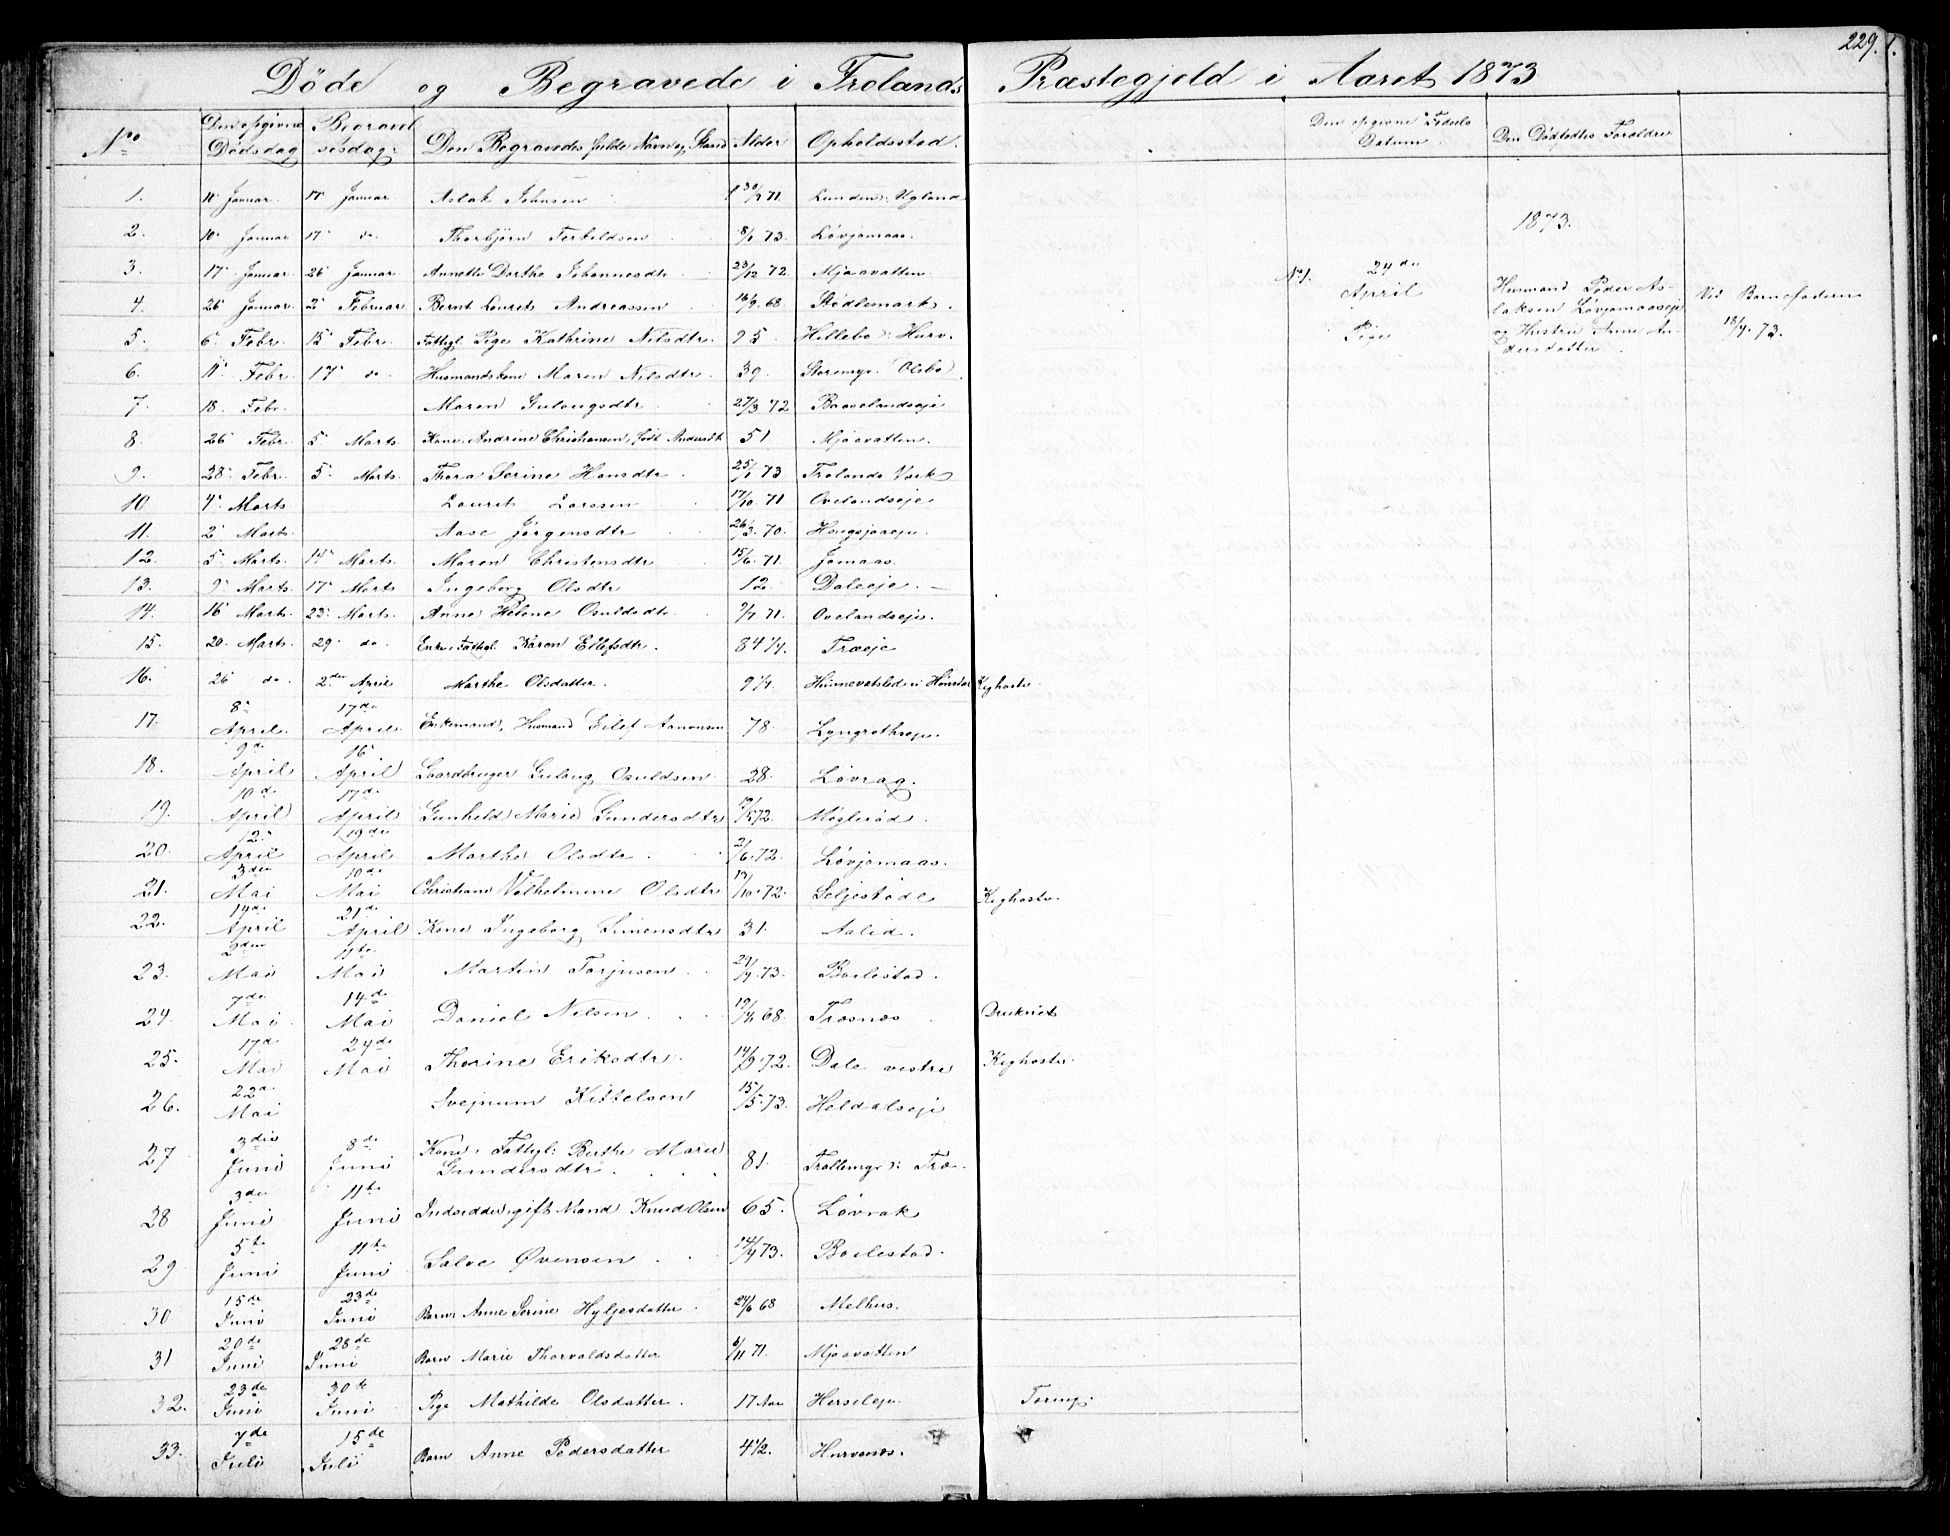 229.
Døde og Begravede i Frolands Præstegjeld i Aaret 1873
No Den opgivne Dødsdag Begravelsesdag Den Begravedes fulde Navn og Stand Alder Opholdssted. Den opgivne Fødsels Datum Den Dødfødtes Forældre
1. 11 Januar 17 Januar Aslak Johnsen 71. Lunden i Ugland
2. 10 Januar 17 do Thorbjørn Terkeldsen 8/1 73. Løvjomaas.
3. 17 Januar 26 Januar Annette Dorthe Johannesdtr. 23/12 72 Mjaavatten
4. 26 Januar 2 Februar Bernt Laurits Andreassen 16/9 68. Stødlemark.
5. 6 Febr. 15 Febr. Fattigl. Pige Kathrine Nilsdtr. 95 Hillebo i Hurv.
6. 11 Febr. 17 do Husmandskone Maren Nilsdtr. 39. Storemyr (Olsbo)
7. 18. Febr. Maren Gulougsdtr 27/3 72 Baavelandseje
8. 26 Febr. 5 Marts Kone Andrine Christiansen, født Andersdtr 51 Mjaavatten.
9. 28 Febr. 5 Marts. Thora Serine Hansdtr 25/1 73 Frolands Værk
10 4 Marts Laurits Larssen 17/10 71 Ovelandseje
11. 2 Marts. Aase Jørgensdtr 26/3 70. Haugsjaaeje.
12. 5 Marts. 14 Marts. Maren Christensdtr 15/6 71. Jomaas.
13. 9 Marts. 17 Marts Ingeborg Olsdtr 12. Daleeje.
14. 16 Marts. 23 Marts. Anne Helene Osuldsdtr. 9/7 71. Ovelandseje.
15. 20. Marts. 29 do. Enke, Fattigl. Karen Ellefsdtr. 84 1/4. Træeje
16. 26 do. 2den April Marthe Olsdatter. 9 1/4. Hinnevatslid i Kighoste.
17. 8 April. 17de April. Enkemand, Husmand Eilef Aanonsen 78. Lyngrothseje.
18. 9de April 16 April Gaardbruger Guloug Osuldsen 28. Løvrag.
19. 10de April 17de April Gunhild Marie Gundersdtr 72. Møglerød.
20. 12 April 19de April Marthe Olsdtr 2/6. 72. Løvjomaas.
21. 3die Mai 10de Mai Christiane Vilhelmine Olsdtr 72. Seljestøde Kighoste.
22. 14de April 21de April Kone Ingeborg Simensdtr 31. Aalid.
23. 2den Mai 11te Mai Martin Torjusen 73. Boilestad.
24. 7de Mai 14de Mai Daniel Nilsen 68. Træsnæs Druknet
25. 17de Mai 24de Mai Thorine Eriksdtr. 14/9 72. Dale vestre Kighoste.
26. 22de Mai Svejnum Kittelsen 15/5. 73. Heldalseje
27 3die Juni 8de Juni Kone, Fattigl: Berthe Marie Gundersdtr. 81. Trollemyr i Træ.
28 3die Juni 11te Juni Indsidder, gift Mand Knud Olsen 65. Løvrak
29 5te Juni 11te Juni Salve Øvensen 73. Boilestad.
30 15de Juni 23de Juni Barn Anne Serine Hyljesdatter 68 Melhus.
31 20de Juni 28de Juni Barn Marie Thorvaldsdatter 71. Mjaavatten
32. 23de Juni 30te Juni Pige Mathilde Olsdatter. 17 Aar Herseleje Tæring.
33. 7de Juli 15de Juli Barn Anne Pedersdatter 4 1/2. Hurvenæs.
1873.
No 1. 24de April Pige
Husmand Peder As-
laksen Løvjomaaseje
og Hustru Anne An-
dersdatter
Ved Barnefaderen
18/7. 73.